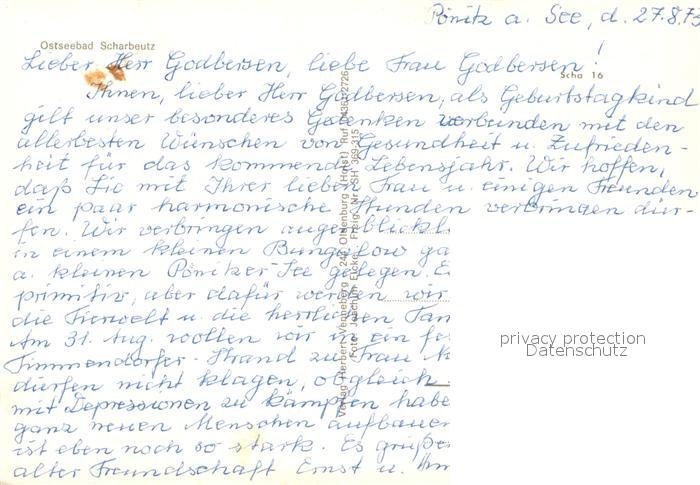 Pönitz a. See, d. 27.8.73
Ostseebad Scharbeutz
Lieber Herr Godbersen, liebe Frau Godbersen!
Scha 16
Ihnen, lieber Herr Godbersen, als Geburtstagkind
gilt unser besonderes Gedenken verbunden mit den
allerbesten Wünschen von Gesundheit u. Zufrieden-
heit für das kommende Lebensjahr. Wir hoffen,
daß Sie mit Ihrer lieben Frau u. einigen Freunden
ein paar harmonische Stunden verbringen dür-
fen. Wir verbringen augenblickl
in einem kleinen Bungalow ga
a. kleinen Pönitzer-See gelegen. E
primitiv, aber dafür werden wir
die Tierwelt u. die herrlichen
Am 31. Aug. wollen wir in ein
Timmendorfer-Strand zu Frau
dürfen nicht klagen, obgleich
mit Depressionen zu kämpfen habe
ganz neuen Menschen aufbauen
ist eben noch so stark. Es grüße
alter Freundschaft Ernst u.
Verlag Herbert Venneberg 242 Oldenburg (Holst) Ruf 04361/2726
Foto: Joachim Eicke Freig. Nr. SH 369-315
privacy protection
Datenschutz